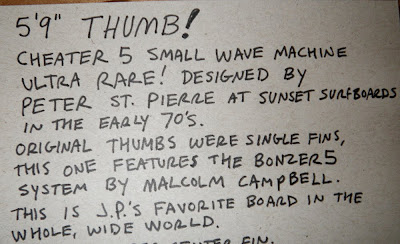 5'9" THUMB!
CHEATER 5 SMALL WAVE MACHINE
ULTRA RARE! DESIGNED BY
PETER ST. PIERRE AT SUNSET SURFBOARDS
IN THE EARLY 70'S.
ORIGINAL THUMBS WERE SINGLE FINS,
THIS ONE FEATURES THE BONZER 5
SYSTEM BY MALCOLM CAMPBELL.
THIS IS J.P.'S FAVORITE BOARD IN THE
WHOLE, WIDE WORLD.
CENTER FIN.